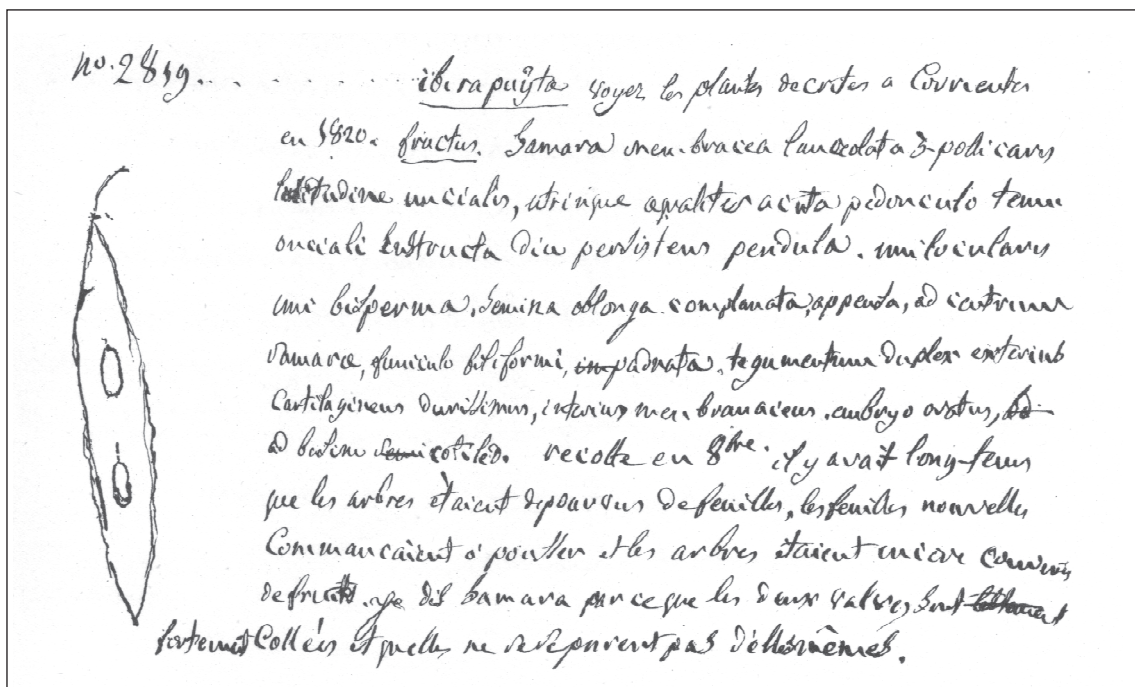 no. 2819. . . . . . . . ibirapuÿta voyez les plantes decrites a Corrientes
en 1820. fructus. Samara membracea lanceolata 3-pollicaris
latitudine uncialis, utrinque equaliter acuta pedonculo tenui
onciali instructa diu persistens pendula. unilocularis
uni bisperma. Semina oblonga complanata, appensa, ad centrum
samarae, funiculo filiformi, tegumentum duplex exterius
Cartilagineus durissimus, interius membranaceus. embryo ovatus,
ad cotiled. recolte en 8bre. il y avait long-tems
que les arbres ètaient depourvus de feuilles, les feuilles nouvelles
Commancaient a pousser et les arbres ètaient encore couverts
de fruits. je dis samara parceque les deux valves sont
fortement Collées et quelles ne se separent pas d'ellesmêmes.